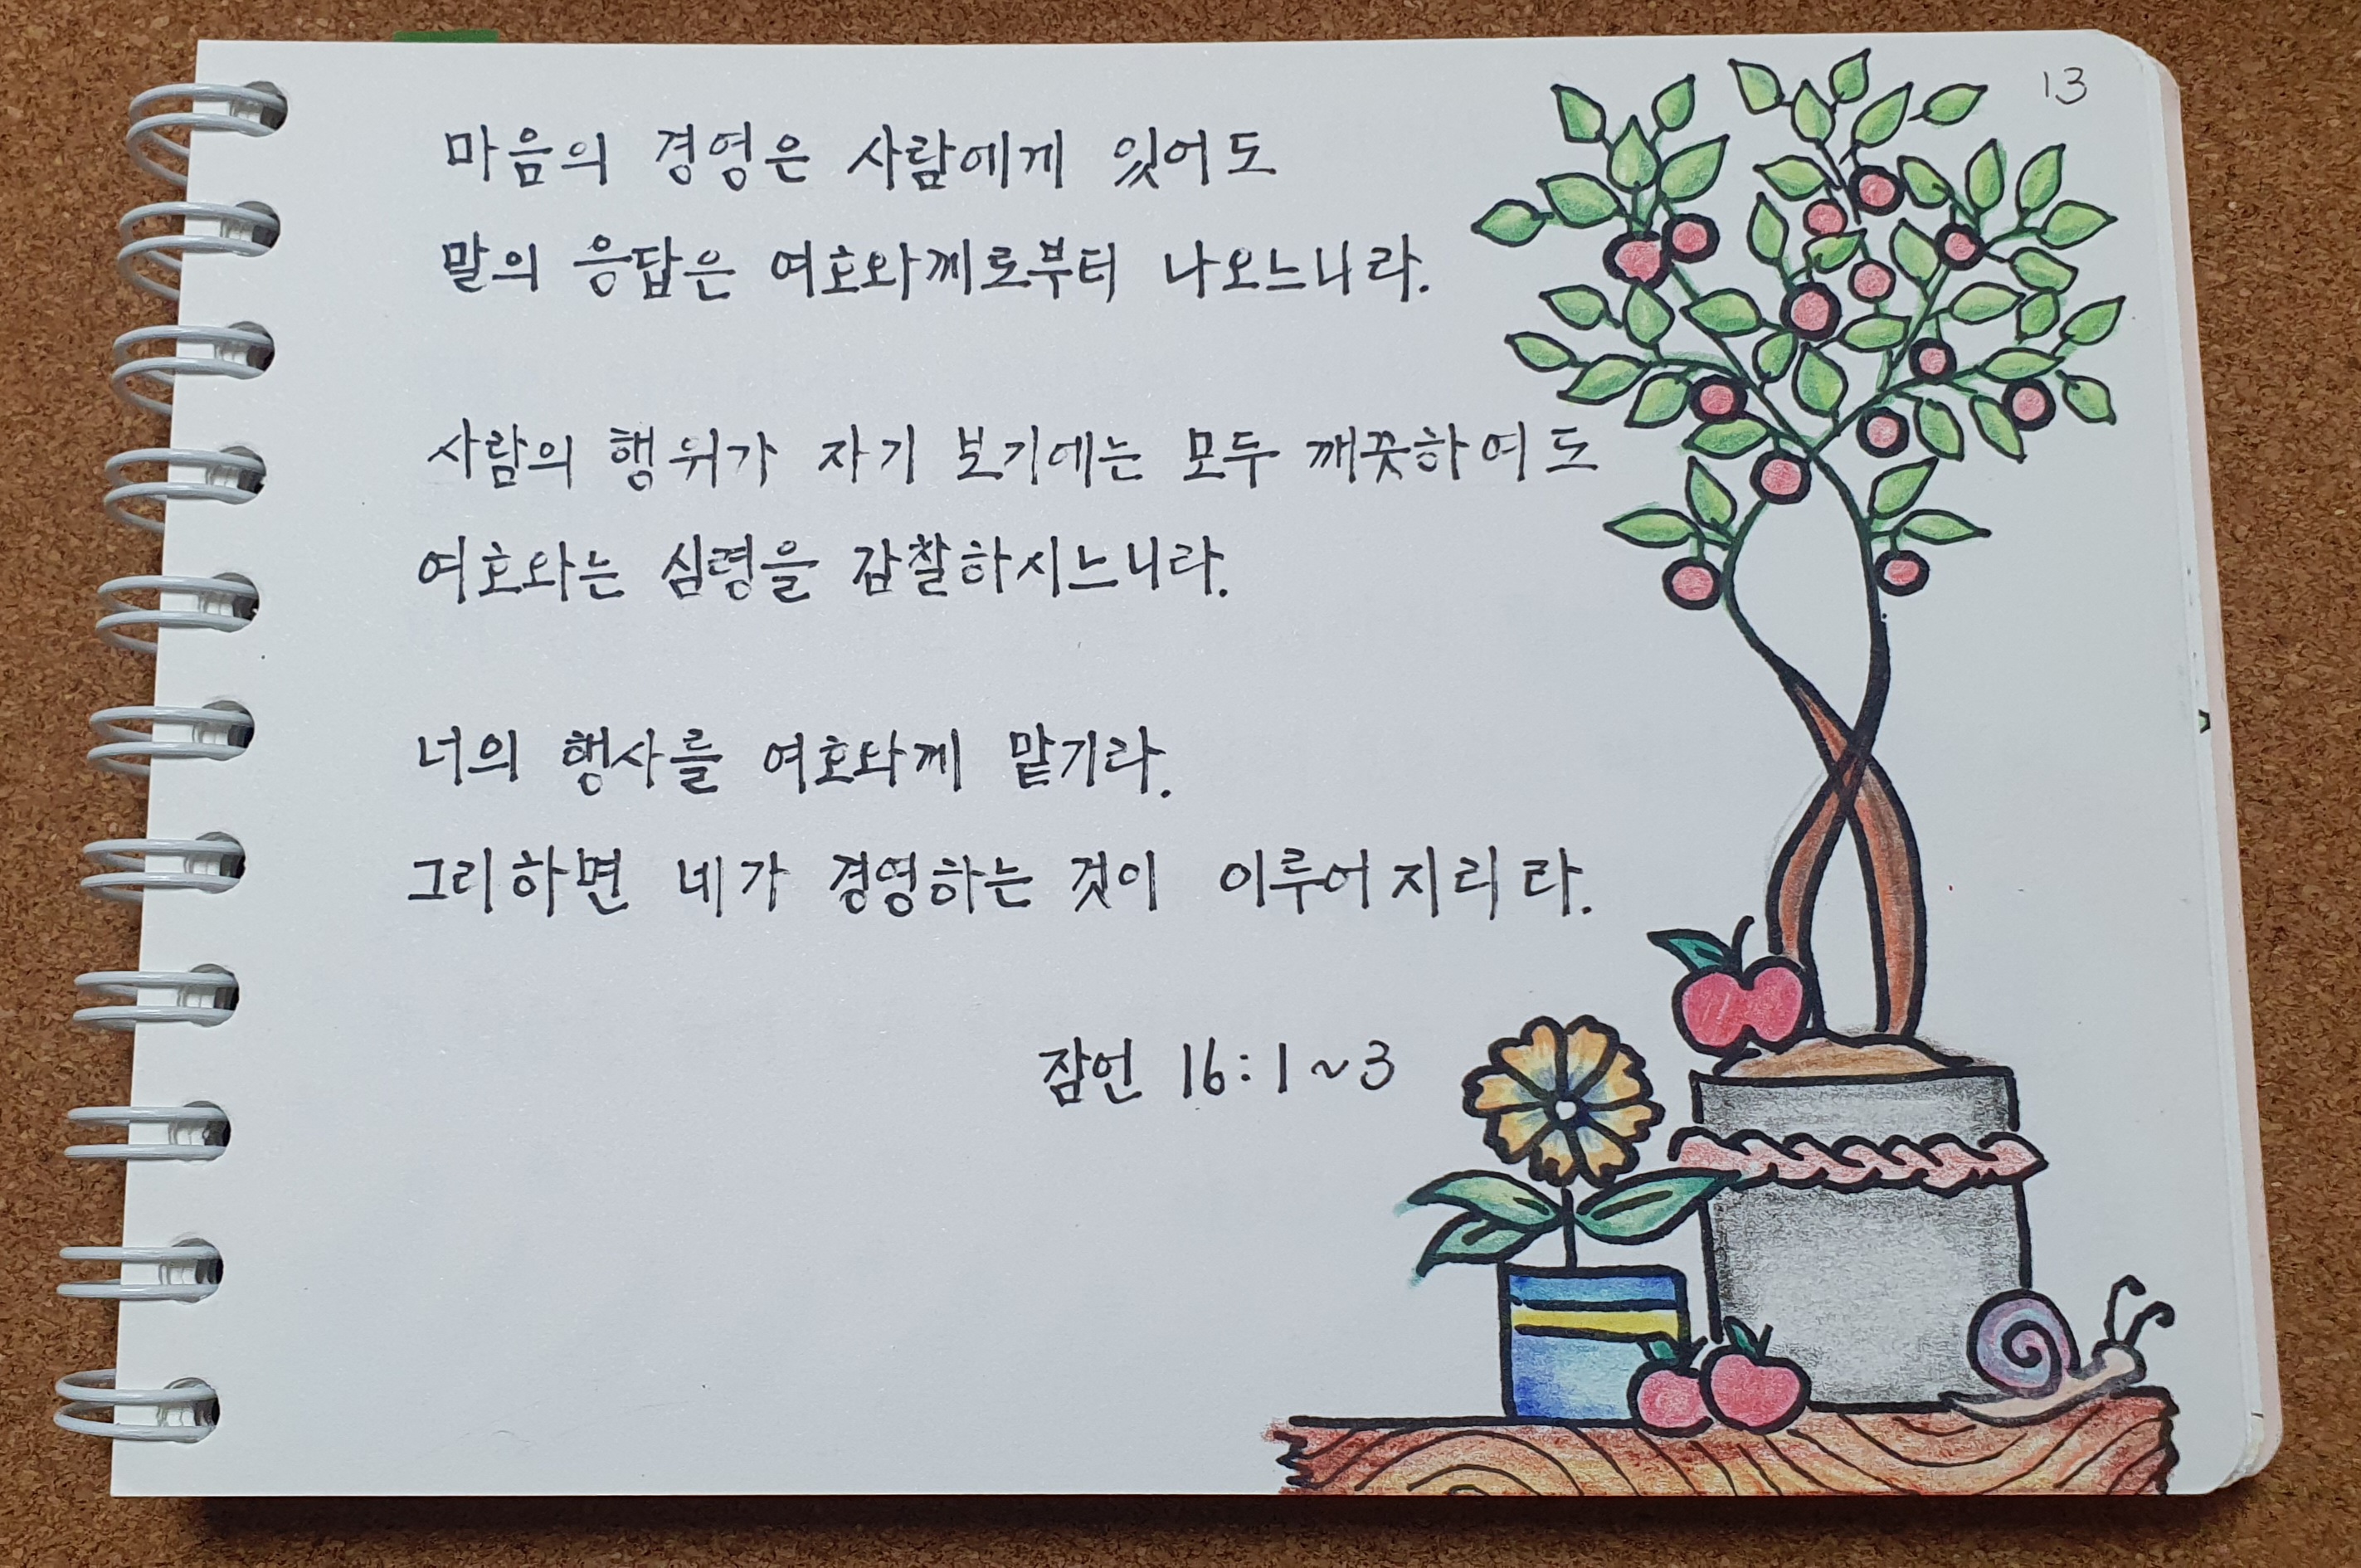 13
마음의 경영은 사람에게 있어도
말의 응답은 여호와께로부터 나오느니라.
사람의 행위가 자기 보기에는 모두 깨끗하여도
여호와는 심령을 감찰하시느니라.
너의 행사를 여호와께 맡기라.
그리하면 네가 경영하는 것이 이루어지리라.
잠언 16:1~3